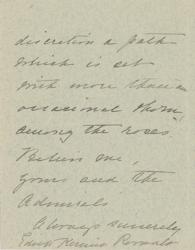 discretion a path
which is set
with more than an
occasional thorn
among the roses.
Believe me,
yours and the
Admirals
Always sincerely
Edith